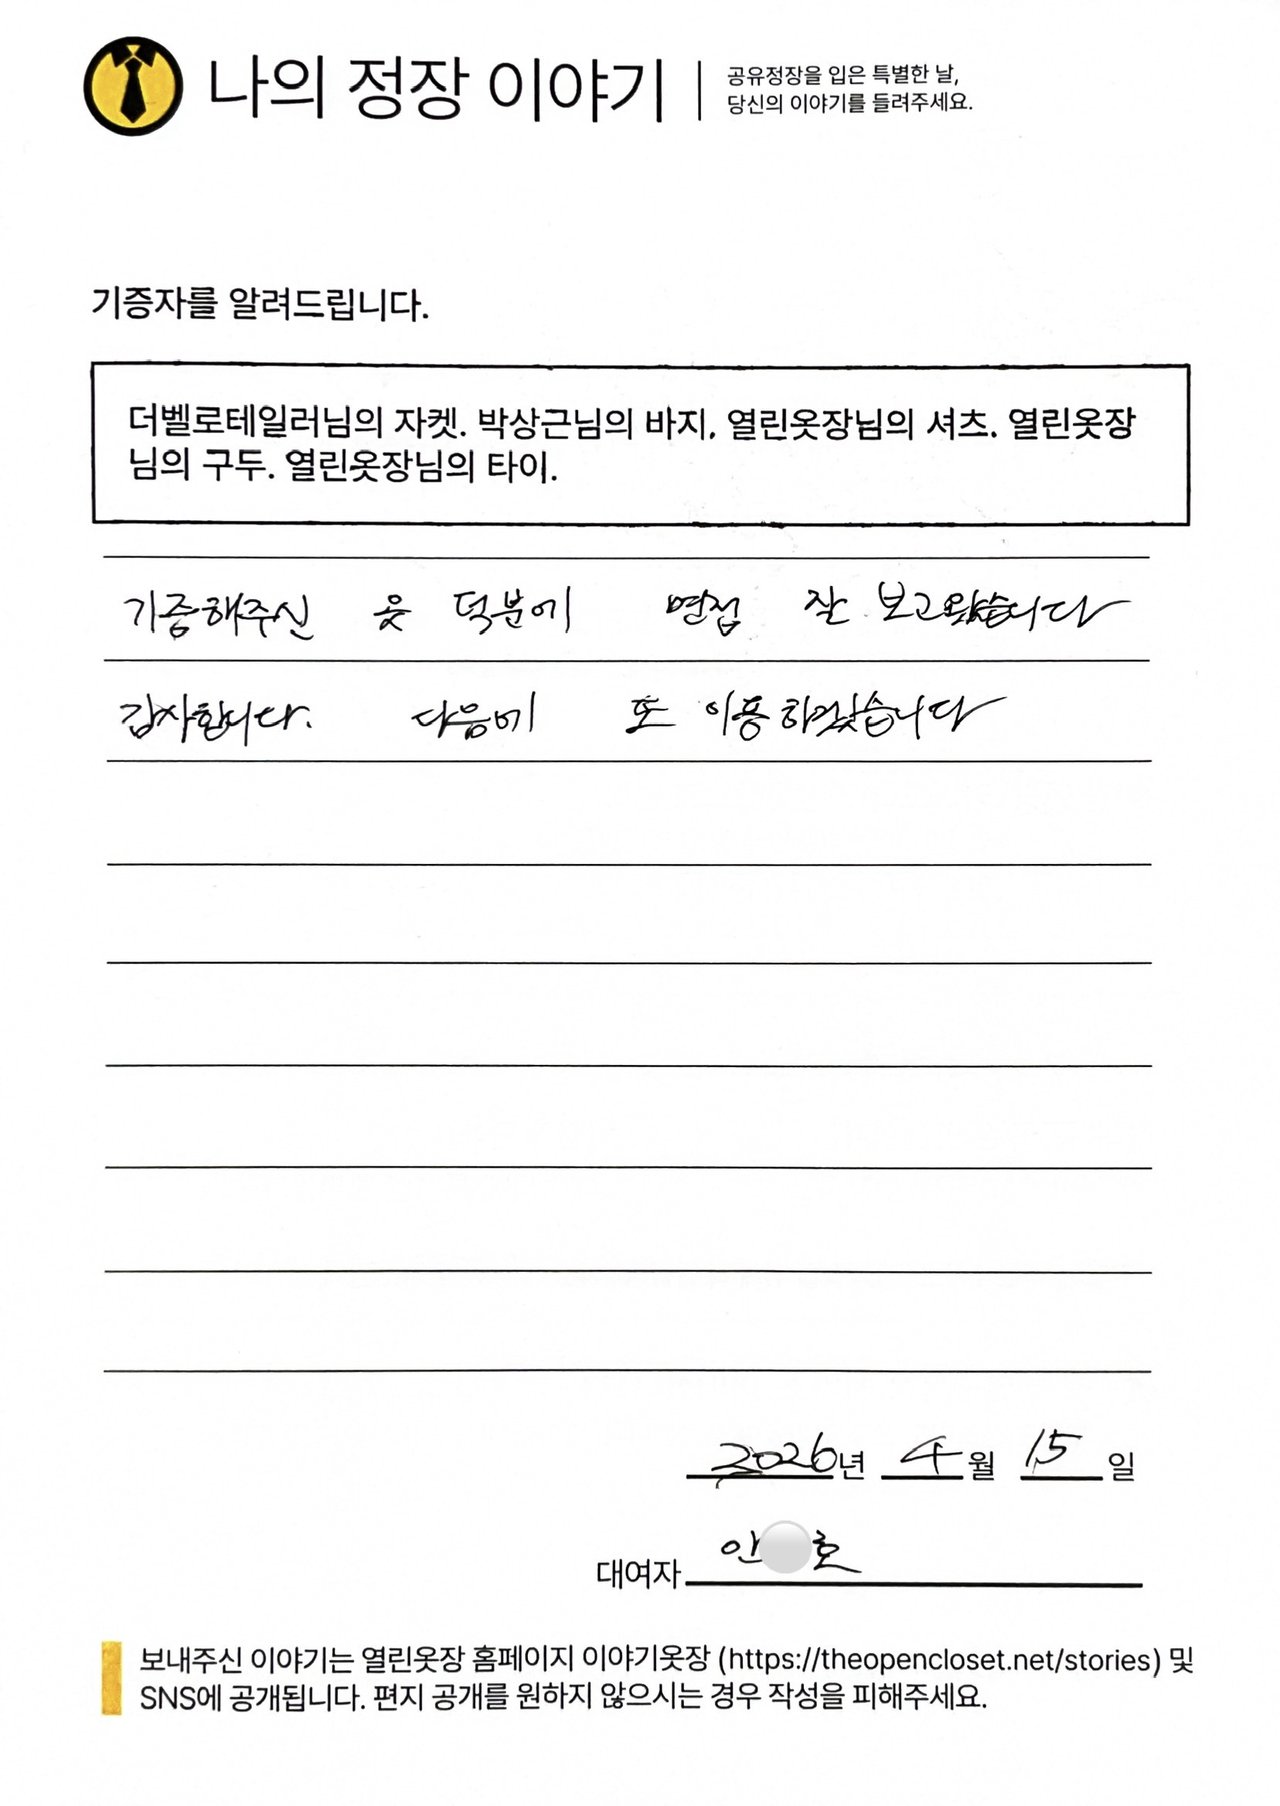 나의 정장 이야기
공유정장을 입은 특별한 날,
당신의 이야기를 들려주세요.
기증자를 알려드립니다.
더벨로테일러님의 자켓. 박상근님의 바지, 열린옷장님의 셔츠. 열린옷장
님의 구두. 열린옷장님의 타이.
기증해주신 옷 덕분에 면접 잘 보고왔습니다
감사합니다. 다음에 또 이용하겠습니다
2026년 4월 15일
대여자 안 호
보내주신 이야기는 열린옷장 홈페이지 이야기옷장 (https://theopencloset.net/stories) 및
SNS에 공개됩니다. 편지 공개를 원하지 않으시는 경우 작성을 피해주세요.